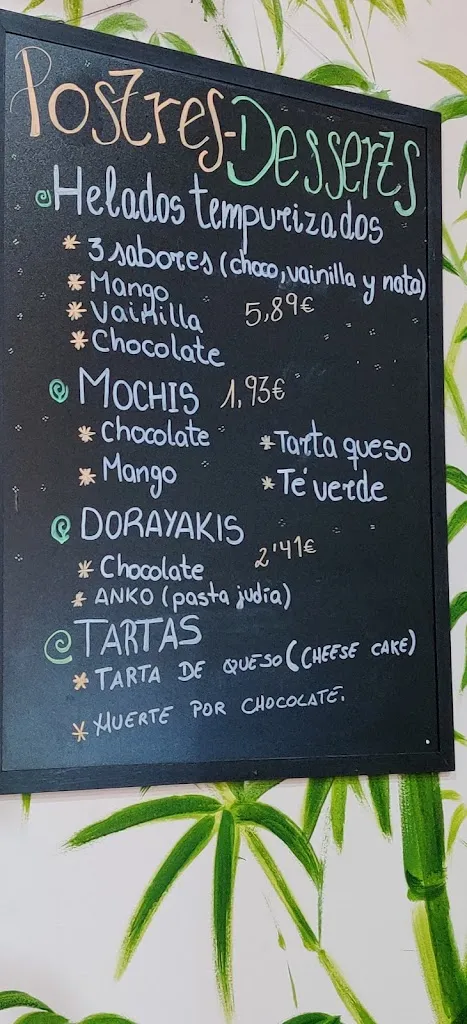 Postres-Desserts
Helados tempurizados
* 3 sabores (choco, vainilla y nata)
* Mango
* Vainilla 5,89€
* Chocolate
MOCHIS 1,93€
* Chocolate * Tarta queso
* Mango * Té verde
DORAYAKIS
* Chocolate 2'41€
* ANKO (pasta judía)
TARTAS
* TARTA DE QUESO (CHEESE CAKE)
* MUERTE POR CHOCOLATE.